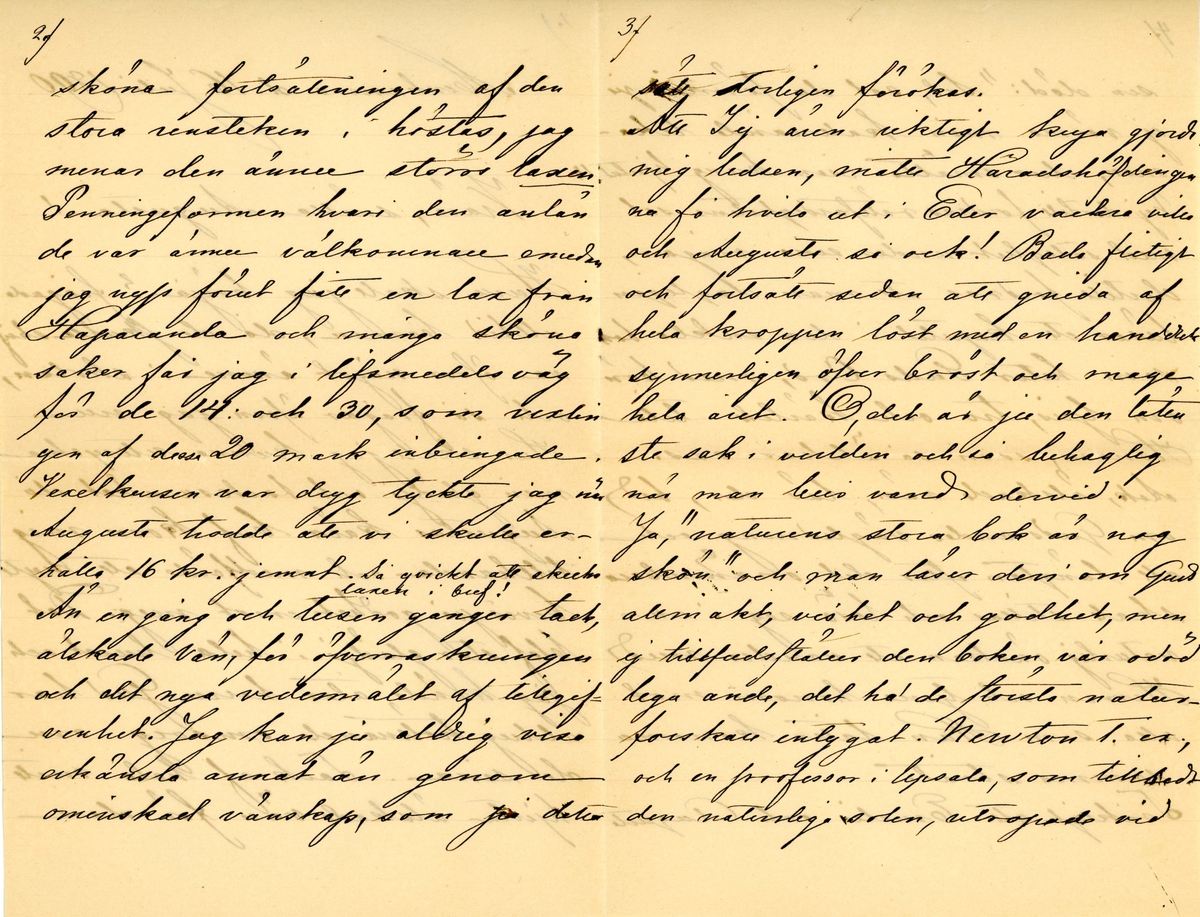 2./
sköna fortsättningen af den
stora rensteken i höstas, jag
menar den ännu större laxen.
Penningeformen hvari den anlän
de var ännu välkomnare emedan
jag nyss förut fått en lax från
Haparanda och många sköna
saker får jag i lifsmedelsväg
för de 14: och 30, som vexlin
gen af dessa 20 mark inbringade.
Vexelkursen var dryg tyckte jag när
Augusta trodde att vi skulle er-
hålla 16 kr. jemnt. Så qvickt att skicka
laxen i bref!
Än en gång och tusen gånger tack,
älskade Vän, för öfverraskningen
och det nya vedermälet af tillgif-
venhet. Jag kan ju aldrig visa
erkänsla annat än genom
ominskad vänskap, som ju detta
3./
sätt troligen förökas.
Att I ej ären riktigt krya gjorde
mig ledsen, måtte Häradshöfdingen
nu få hvila ut i Eder vackra villa
och Augusta så ock! Bada flitigt
och fortsätt sedan att gnida af
hela kroppen löst med en handduk
synnerligen öfver bröst och mage
hela året. O, det är ju den lätta
ste sak i verlden och så behaglig
när man blir vand dervid.
Ja, "naturens stora bok är nog
skön" och man läser deri om Guds
allmakt, vishet och godhet, men
ej tillfredsställer den boken vår odöd
liga ande, det ha de största natur-
forskare intygat. Newton t. ex.,
och en professor i Upsala, som tillbedt
den naturliga solen, utropade vid